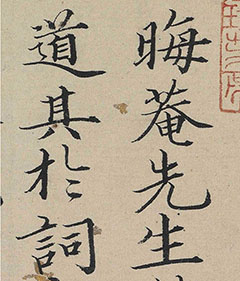 晦菴先生
道其於詞